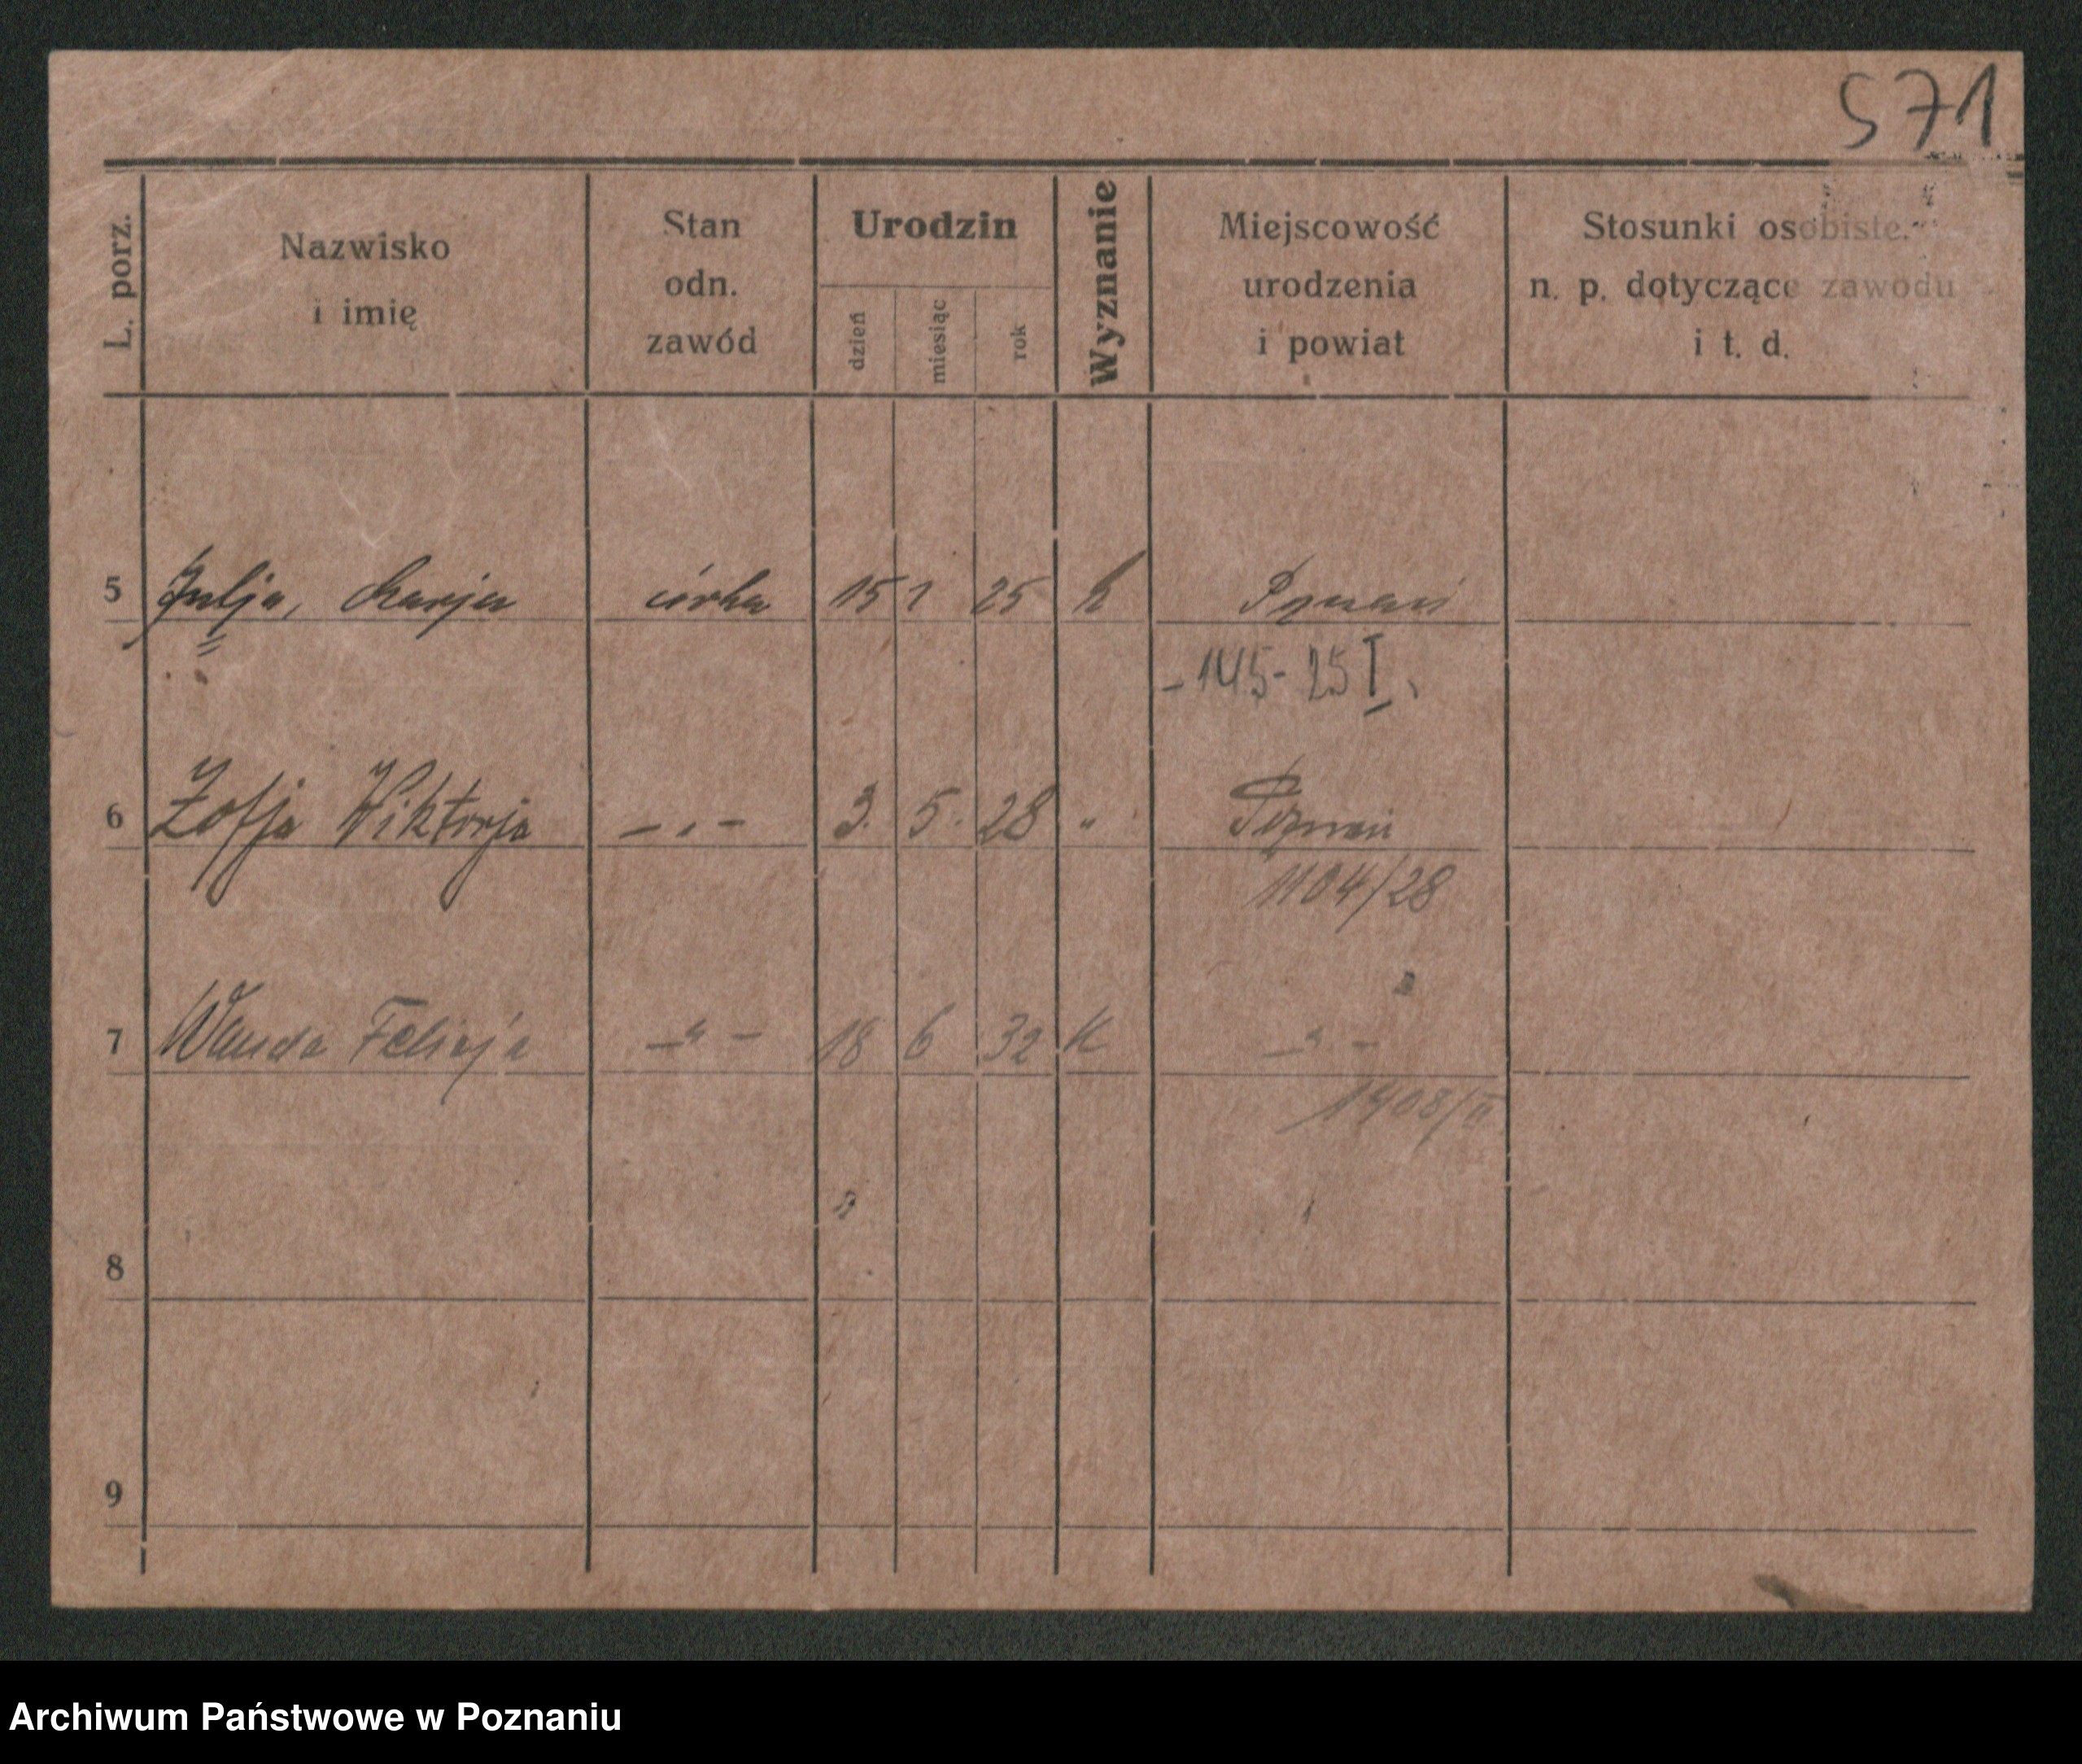 571
L. porz.
Nazwisko
i imię
Stan
odn.
zawód
Urodzin
dzień
miesiąc
rok
Wyznanie
Miejscowość
urodzenia
i powiat
Stosunki osobiste
n. p. dotyczące zawodu
i t. d.
5 Julja, Marja córka 15 1 25 k Poznań
-145-25 I.
6 Zofja Wiktorja — „ — 3. 5. 28 „ Poznań
1104/28
7 Wanda Felicja — „ — 18 6 32 K — „ —
1908/II
8
9
Archiwum Państwowe w Poznaniu